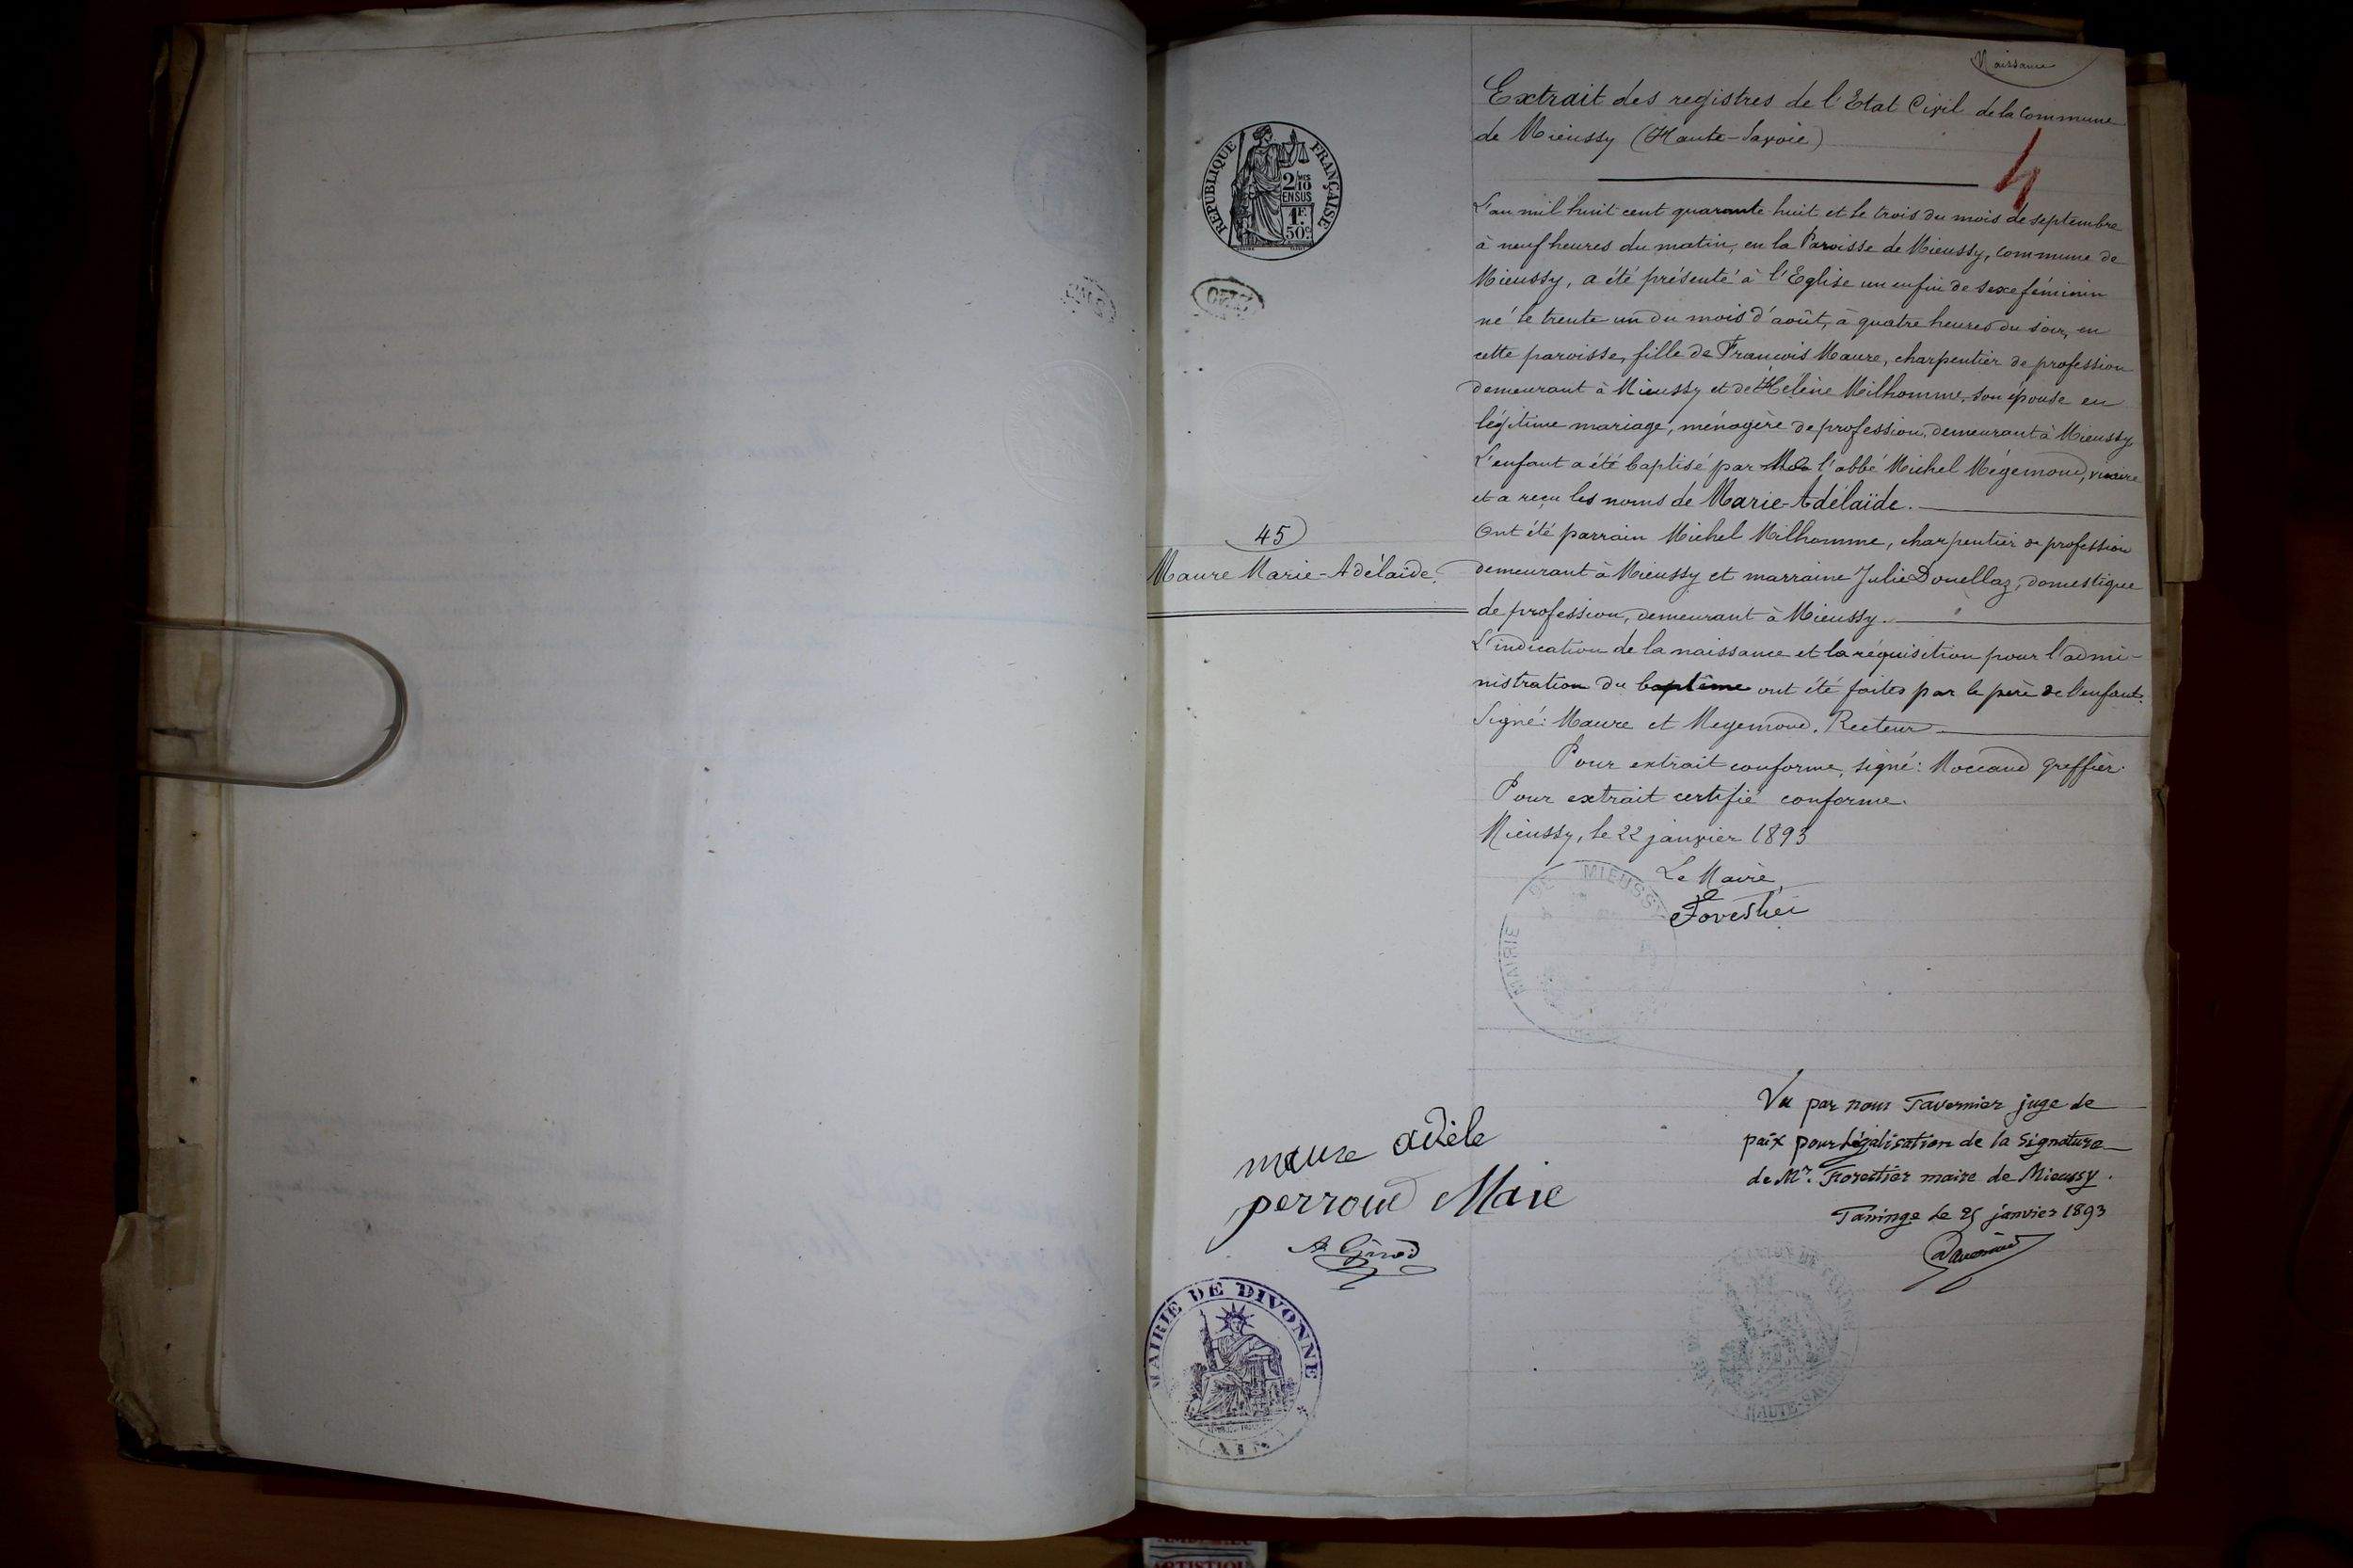 Naissance
Extrait des registres de l'Etat Civil de la Commune
de Mieussy (Haute-Savoie)
4
REPUBLIQUE FRANÇAISE
2/10 EN SUS
1F. 50c.
L'an mil huit cent quarante huit et le trois du mois de septembre
à neuf heures du matin, en la Paroisse de Mieussy, commune de
Mieussy, a été présenté à l'Eglise un enfin de sexe féminin
né le trente un du mois d'août, à quatre heures du soir, en
cette paroisse, fille de François Maure, charpentier de profession
demeurant à Mieussy et de Hélène Milhomme, son épouse en
légitime mariage, ménagère de profession, demeurant à Mieussy
L'enfant a été baptisé par l'abbé Michel Mégemond, vicaire
et a reçu les noms de Marie-Adélaïde.
Ont été parrain Michel Milhomme, charpentier de profession
45
Maure Marie-Adélaïde.
demeurant à Mieussy et marraine Julie Douellaz, domestique
de profession, demeurant à Mieussy.
L'indication de la naissance et la réquisition pour l'admi-
nistration du baptême ont été faites par le père de l'enfant.
Signé: Maure et Megemond, Recteur
Pour extrait conforme, signé: Moccand Greffier.
Pour extrait certifié conforme.
Mieussy, le 22 janvier 1893
Le Maire,
Forestier
MAIRIE DE MIEUSSY
Vu par nous Tavernier juge de
paix pour légalisation de la Signature
de Mr. Forestier maire de Mieussy.
Taninge le 25 janvier 1893
Tavernier
maure adèle
perroud Marie
A. Girod
MAIRIE DE DIVONNE
(AIN)
HAUTE-SAVOIE